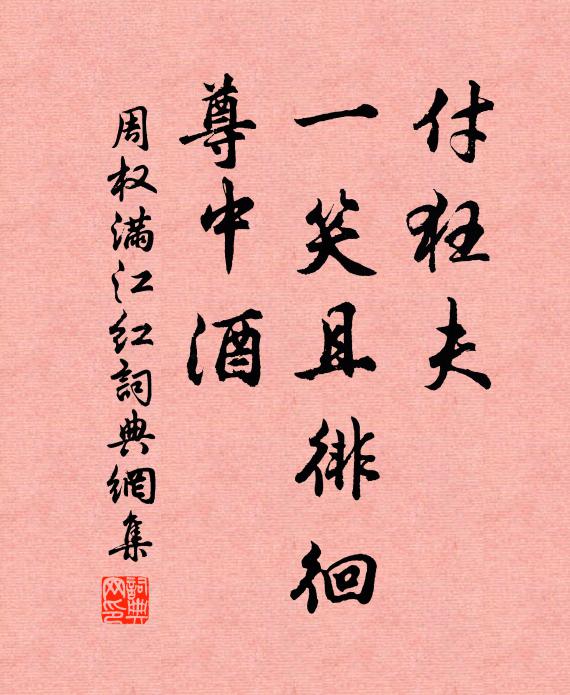 付狂夫
一笑且徘徊
尊中酒
周权满江红詞典網集
詞典网印